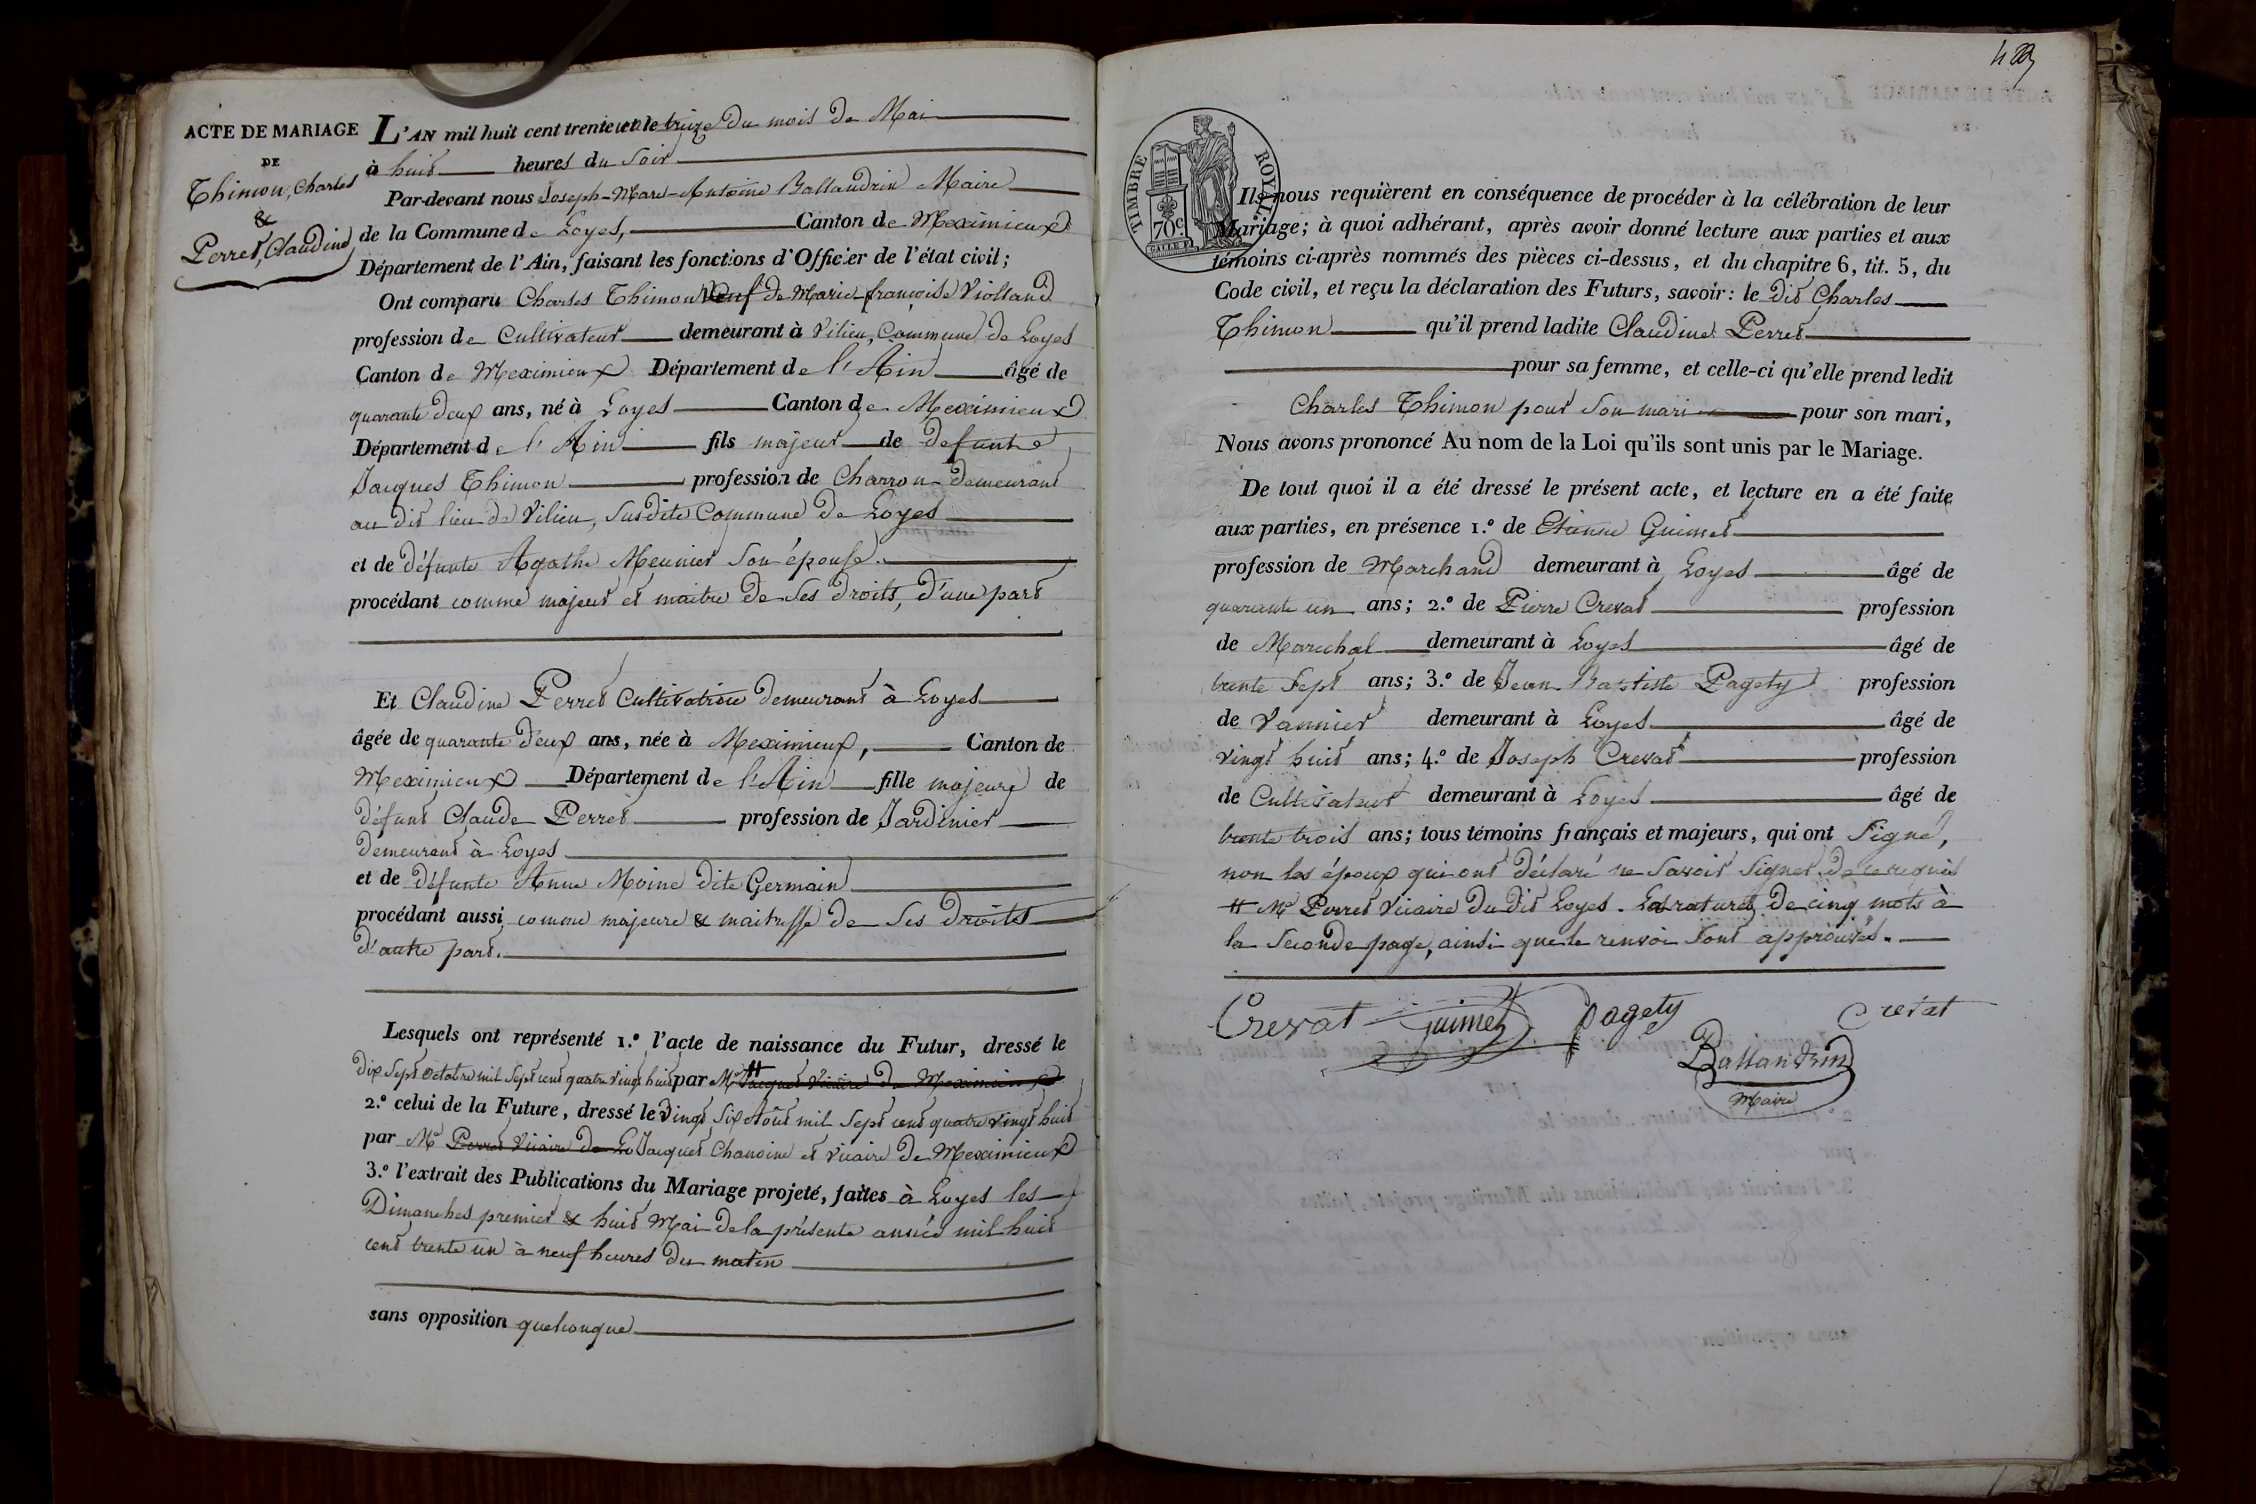 ACTE DE MARIAGE
DE
Thimon, Charles
&
Perret, Claudine
L'AN mil huit cent trente un le treize du mois de Mai
à huit heures du soir
Par-devant nous Joseph-Marc-Antoine Ballandrin Maire
de la Commune de Loyes, Canton de Meximieux
Département de l'Ain, faisant les fonctions d'Officier de l'état civil;
Ont comparu Charles Thimon Veuf de Marie françoise Violland
profession de Cultivateur demeurant à Vilieu, Commune de Loyes
Canton de Meximieux Département de l'Ain âgé de
quarante deux ans, né à Loyes Canton de Meximieux
Département de l'Ain fils majeur de defunte
Jacques Thimon profession de Charron demeurant
au dit lieu de Vilieu, susdite Commune de Loyes
et de défunte Agathe Meunier son épouse.
procédant comme majeur et maitre de ses droits, d'une part
Et Claudine Perret Cultivatrice demeurant à Loyes
âgée de quarante deux ans, née à Meximieux, Canton de
Meximieux Département de l'Ain fille majeure de
défunt Claude Perret profession de Jardinier
demeurant à Loyes
et de défunte Anne Moine dite Germain
procédant aussi comme majeure & maitresse de ses droits
d'autre part.
Lesquels ont représenté 1.º l'acte de naissance du Futur, dressé le
dix sept octobre mil sept cent quatre vingt huit par Mr # Jacquet Vicaire de Meximieux
2.º celui de la Future, dressé le Vingt six Août mil sept cent quatre vingt huit
par Mr Perret Vicaire de Lo Jacquet Chanoine et Vicaire de Meximieux
3.º l'extrait des Publications du Mariage projeté, faites à Loyes les
Dimanches premier & huit Mai de la présente année mil huit
cent trente un à neuf heures du matin
sans opposition quelconque
TIMBRE ROYAL
70c
Ils nous requièrent en conséquence de procéder à la célébration de leur
Mariage; à quoi adhérant, après avoir donné lecture aux parties et aux
témoins ci-après nommés des pièces ci-dessus, et du chapitre 6, tit. 5, du
Code civil, et reçu la déclaration des Futurs, savoir: le dit Charles
Thimon qu'il prend ladite Claudine Perret
pour sa femme, et celle-ci qu'elle prend ledit
Charles Thimon pour son mari pour son mari,
Nous avons prononcé Au nom de la Loi qu'ils sont unis par le Mariage.
De tout quoi il a été dressé le présent acte, et lecture en a été faite
aux parties, en présence 1.º de Etienne Guimet
profession de Marchand demeurant à Loyes âgé de
quarante un ans; 2.º de Pierre Crevat profession
de Marechal demeurant à Loyes âgé de
trente sept ans; 3.º de Jean Baptiste Pagety profession
de Vannier demeurant à Loyes âgé de
vingt huit ans; 4.º de Joseph Crevat profession
de Cultivateur demeurant à Loyes âgé de
trente trois ans; tous témoins français et majeurs, qui ont signé,
non les époux qui ont déclaré ne savoir signer de ce requis
# Mr Perret Vicaire du dit Loyes. La rature de cinq mots à
la seconde page, ainsi que le renvoi sont approuvés.
Crevat Guimet Pagety Crevat
Ballandrin
Maire